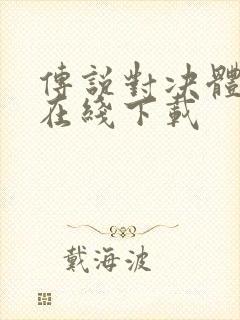 傳說對决體
在綫下載
戴海波